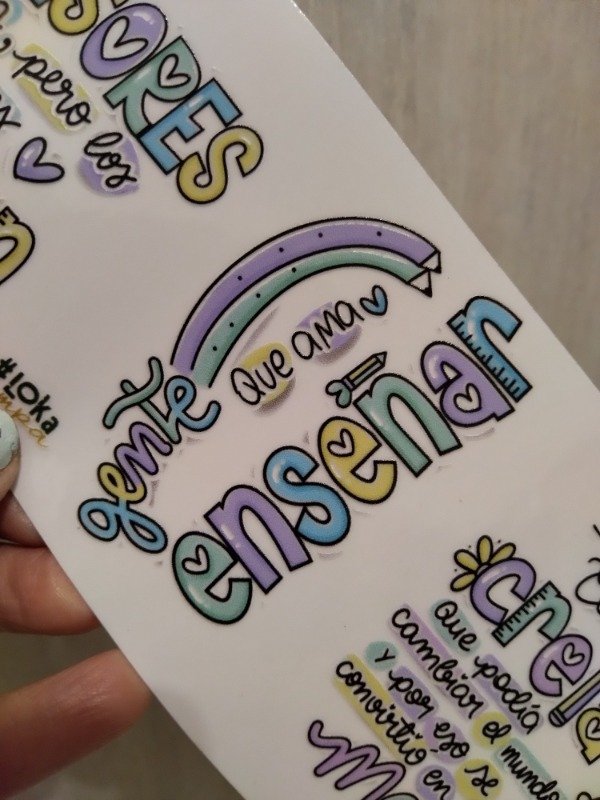 SORES
pero
los
#Loka
gente
que ama
enseñar
creía
que podía
cambiar el mundo
y por eso se
convirtió en